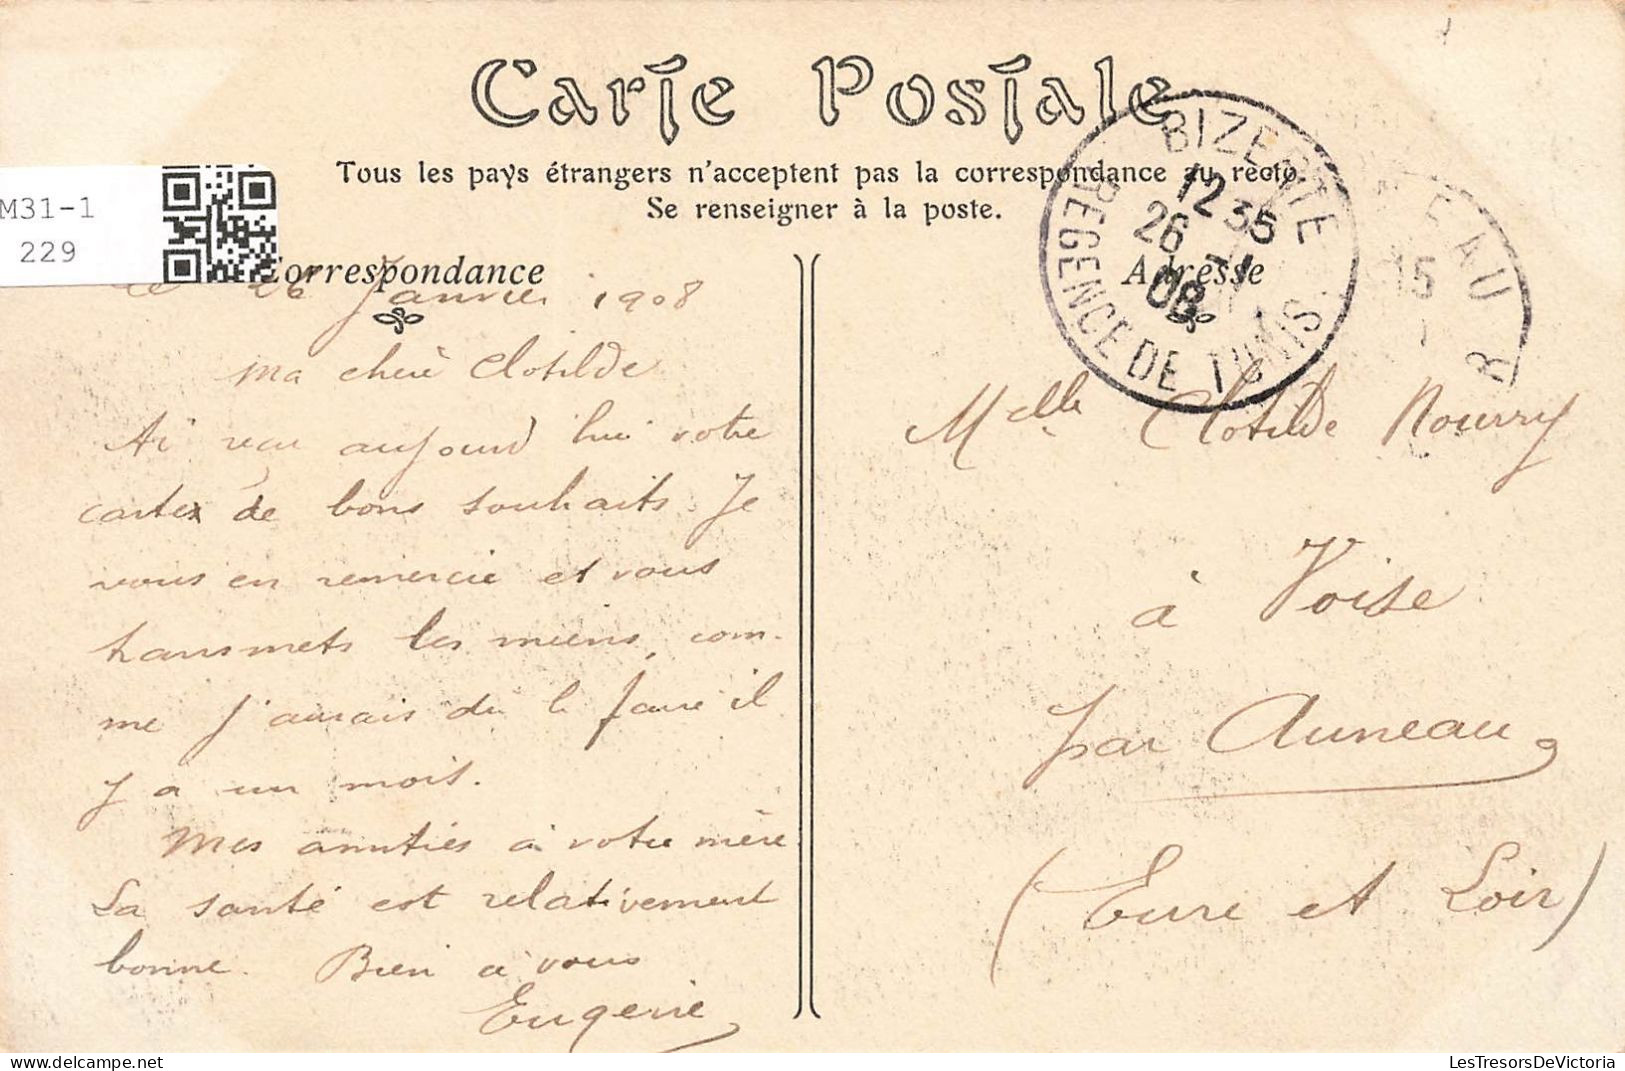 Carte Postale
Tous les pays étrangers n'acceptent pas la correspondance au recto.
Se renseigner à la poste.
M31-1
229
Correspondance
Adresse
BIZERTE
12 35
26 -1
08
REGENCE DE TUNIS
EAU
15
le 26 Janvier 1908
Ma chère Clotilde
Ai reçu aujourd'hui votre
carte de bons souhaits. Je
vous en remercie et vous
transmets les miens, com-
me j'aurais du le faire il
y a un mois.
Mes amitiés à votre mère.
La santé est relativement
bonne. Bien à vous
Eugenie
Melle Clotilde Nourry
à Voise
par Auneau
(Eure et Loir)
LesTresorsDeVictoria